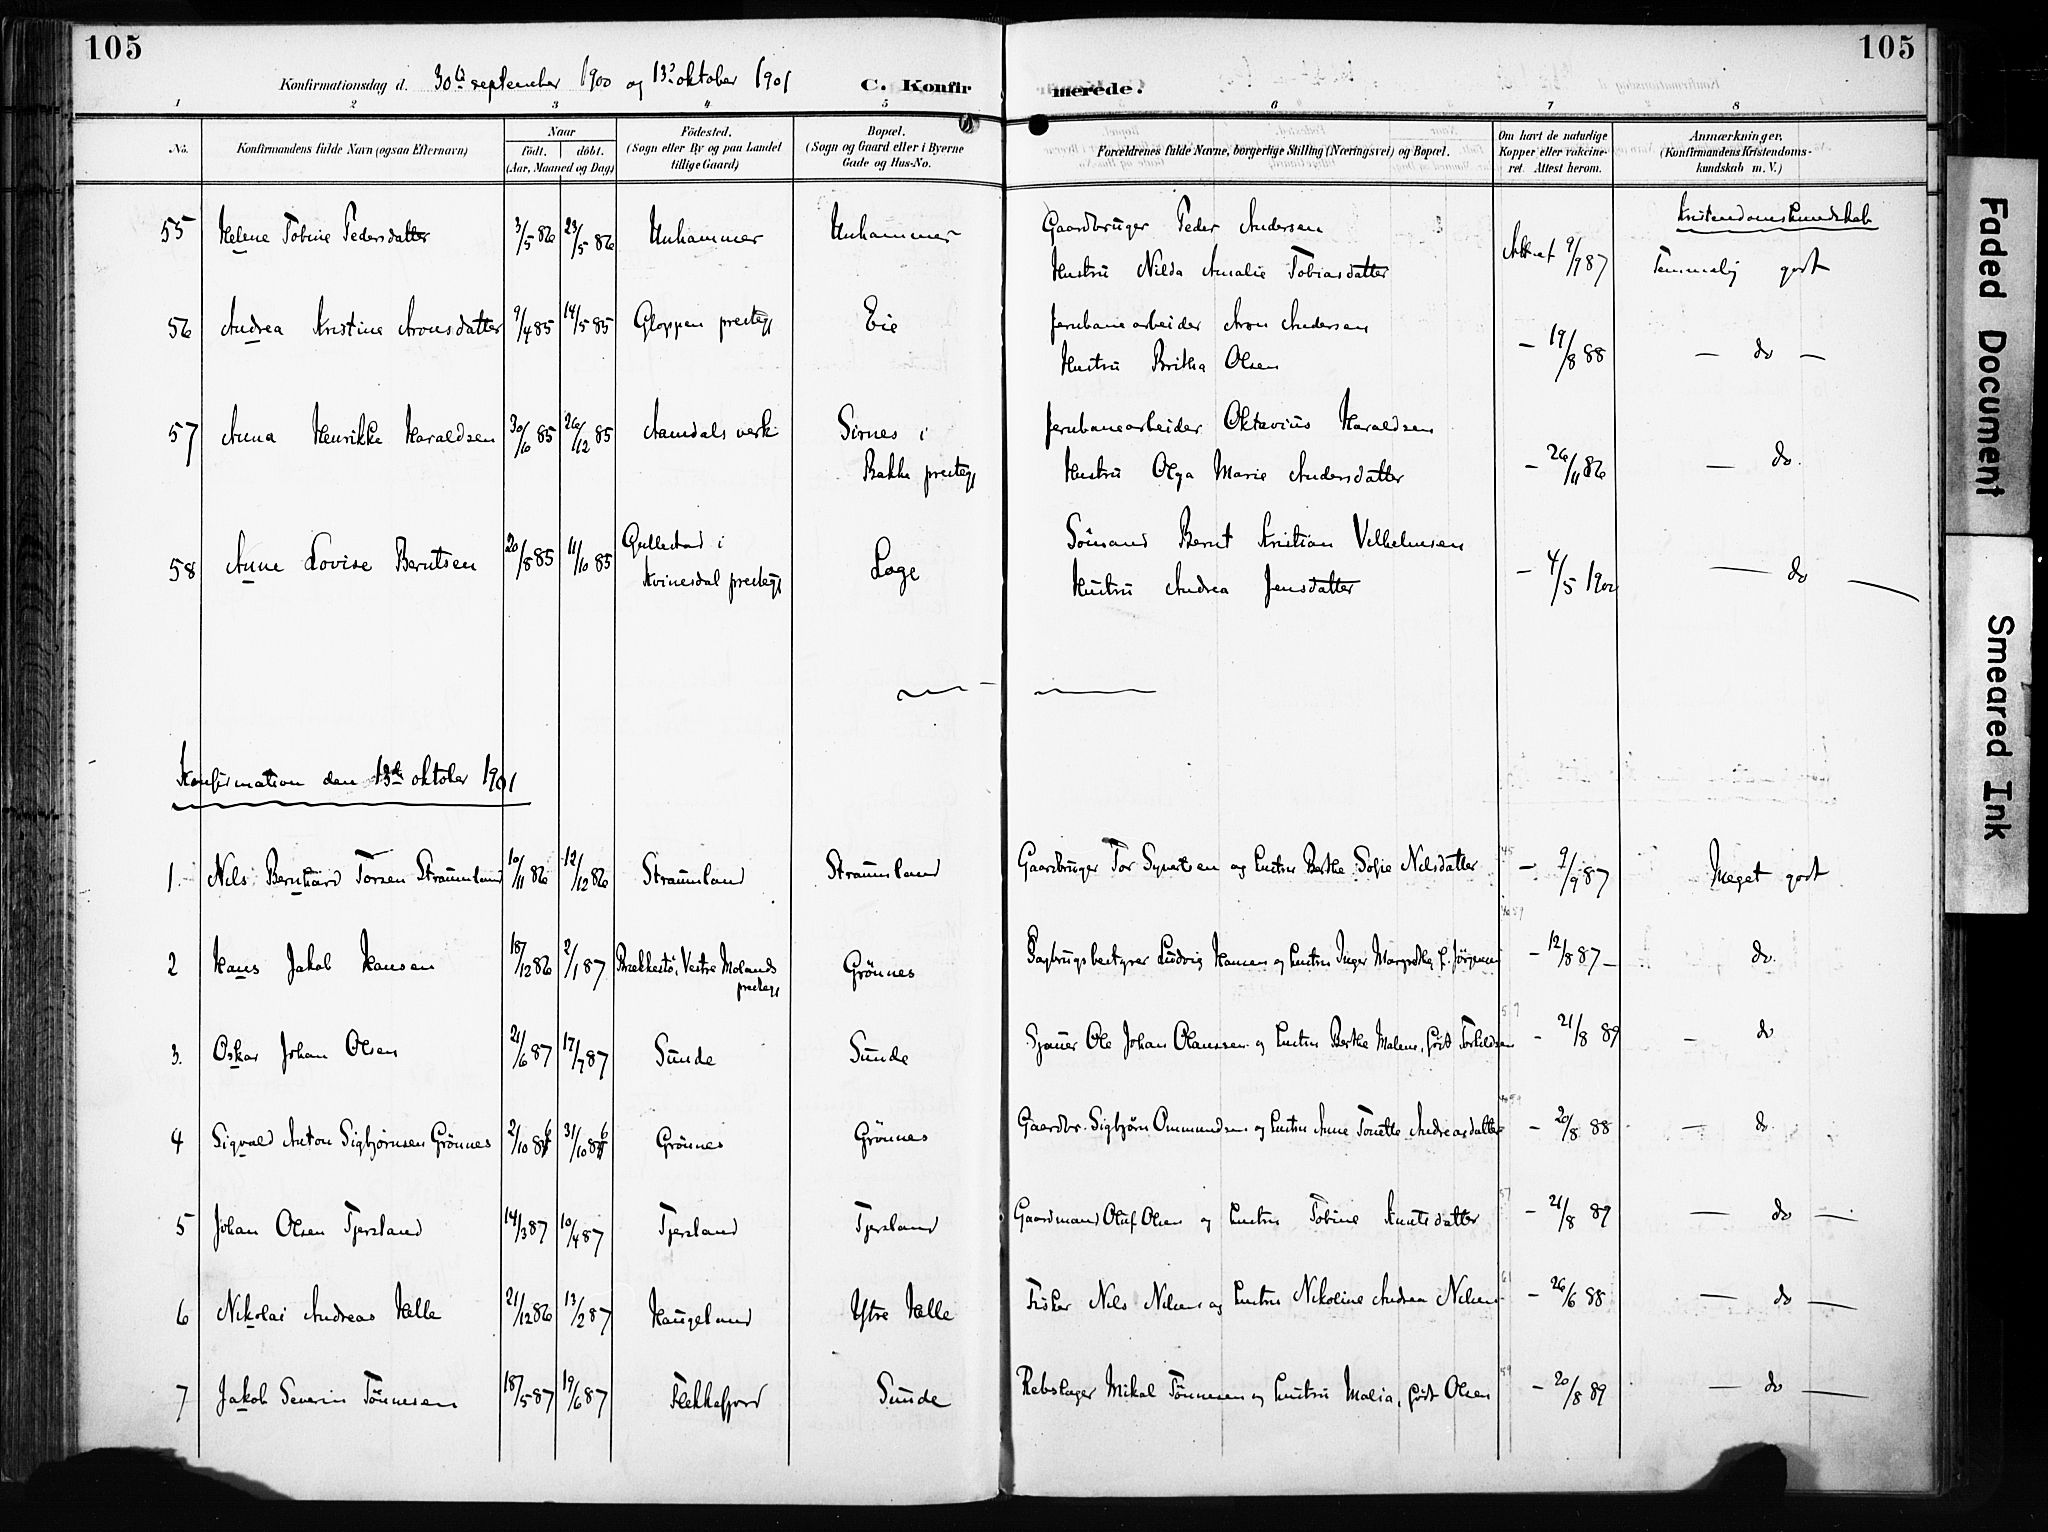 105
105
Konfirmationsdag d. 30te september 1900 og 13de oktober 1901
C. Konfir merede.
1 2 3 4 5 6 7 8
No.
Konfirmandens fulde Navn (ogsaa Efternavn)
Naar
født. døbt.
(Aar, Maaned og Dag)
Födested.
(Sogn eller By og paa Landet
tillige Gaard)
Bopæl.
(Sogn og Gaard eller i Byerne
Gade og Hus-No.
Forældrenes fulde Navne, borgerlige Stilling (Næringsvei) og Bopæl.
Om havt de naturlige
Kopper eller vakcine-
ret. Attest herom.
Anmærkninger.
(Konfirmandens Kristendoms-
kundskab m. V.)
Kristendomskundskab
55 Helene Tobine Pedersdatter 3/5 86 23/5 86 Unhammer Unhammer Gaardbruger Peder Andersen
Hustru Nilda Amalie Tobiasdatter Attest 9/9 87 Temmelig godt
56 Andrea Kristine Aronsdatter 9/4 85 14/5 85 Gloppen prestegj Eie Jernbanearbeider Aron Andersen
Hustru Britha Olsen — 19/8 88 — do —
57 Anna Henrikke Haraldsen 30/10 85 26/12 85 Aamdals verk Sirnes i
Bakke prestegj
Jernbanearbeider Oktavius Haraldsen
Hustru Olga Marie Andersdatter — 26/11 86 — do.
58 Anne Lovise Berntsen 20/8 85 11/10 85 Gullestad i
Kvinesdal prestegj
Loge
Sömand Bernt Kristian Vilhelmsen
Hustru Andrea Jensdatter — 4/5 1900 — do —
Konfirmation den 13de oktober 1901
1. Nils Bernhard Torsen Straumland 10/11 86 12/12 86 Straumland Straumland Gaardbruger Tor Syvertsen og hustru Berthe Sofie Nilsdatter — 9/9 87 Meget godt
2 Hans Jakob Hansen 18/12 86 2/1 87 Brekkestö, Vestre Molands
prestegj
Grönnes Ludvig Hansen og hustru Inger Margrethe f. Jörgensen — 12/8 87 — do.
3. Oskar Johan Olsen 21/6 87 17/7 87 Sunde Sunde Sjauer Ole Johan Olaussen og hustru Berthe Malene, født — 21/8 89 — do
4 Sigvald Anton Sigbjørnsen Grönnes 2/10 86 31/10 86 Grönnes Grönnes Gaardbr. Sigbjørn Ommundsen og hustru Anne Tonette Andreasdatter — 20/8 88 — do.
5 Johan Olsen Tjersland 14/3 87 10/4 87 Tjersland Tjersland Gaardmand Oluf Olsen og hustru Tobine Knutsdatter — 21/8 89 — do —
6 Nikolai Andreas Helle 21/12 86 13/2 87 Haugeland Ytre Helle Fisker Nils Nilsen og hustru Nikoline Andrea Nilsen — 26/6 88 — do —
7 Jakob Severin Tönnesen 18/5 87 19/6 87 Flekkefjord Sunde Rebslager Mikal Tönnesen og hustru Malia, født Olsen — 20/8 89 — do —
Faded Document
Smeared Ink